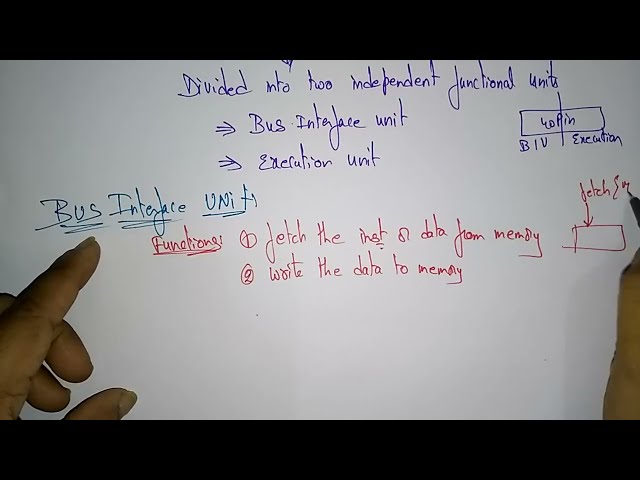 Divided into two independent functional units
⇒ Bus Interface unit
⇒ Execution unit
40 Pin
BIU Execution
BUS Interface UNit:
fetch {
Functions: ① fetch the inst or data from memory
② write the data to memory